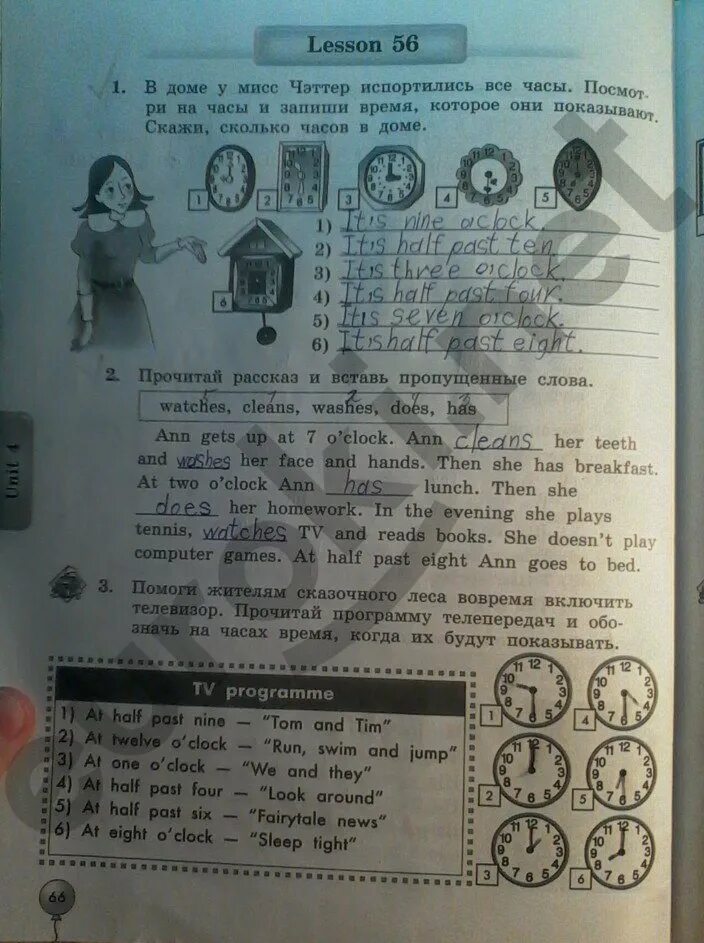 Lesson 56
1. В доме у мисс Чэттер испортились все часы. Посмот-
ри на часы и запиши время, которое они показывают.
Скажи, сколько часов в доме.
1 2 3 4 5
1) It is nine o'clock.
2) It is half past ten
3) It is three o'clock.
4) It is half past four.
5) It is seven o'clock.
6) It is half past eight.
6
2. Прочитай рассказ и вставь пропущенные слова.
watches, cleans, washes, does, has
Ann gets up at 7 o'clock. Ann cleans her teeth
and washes her face and hands. Then she has breakfast.
At two o'clock Ann has lunch. Then she
does her homework. In the evening she plays
tennis, watches TV and reads books. She doesn't play
computer games. At half past eight Ann goes to bed.
Unit 4
3. Помоги жителям сказочного леса вовремя включить
телевизор. Прочитай программу телепередач и обо-
значь на часах время, когда их будут показывать.
TV programme
1) At half past nine — "Tom and Tim"
2) At twelve o'clock — "Run, swim and jump"
3) At one o'clock — "We and they"
4) At half past four — "Look around"
5) At half past six — "Fairytale news"
6) At eight o'clock — "Sleep tight"
1 4
2 5
3 6
66
eurokinet